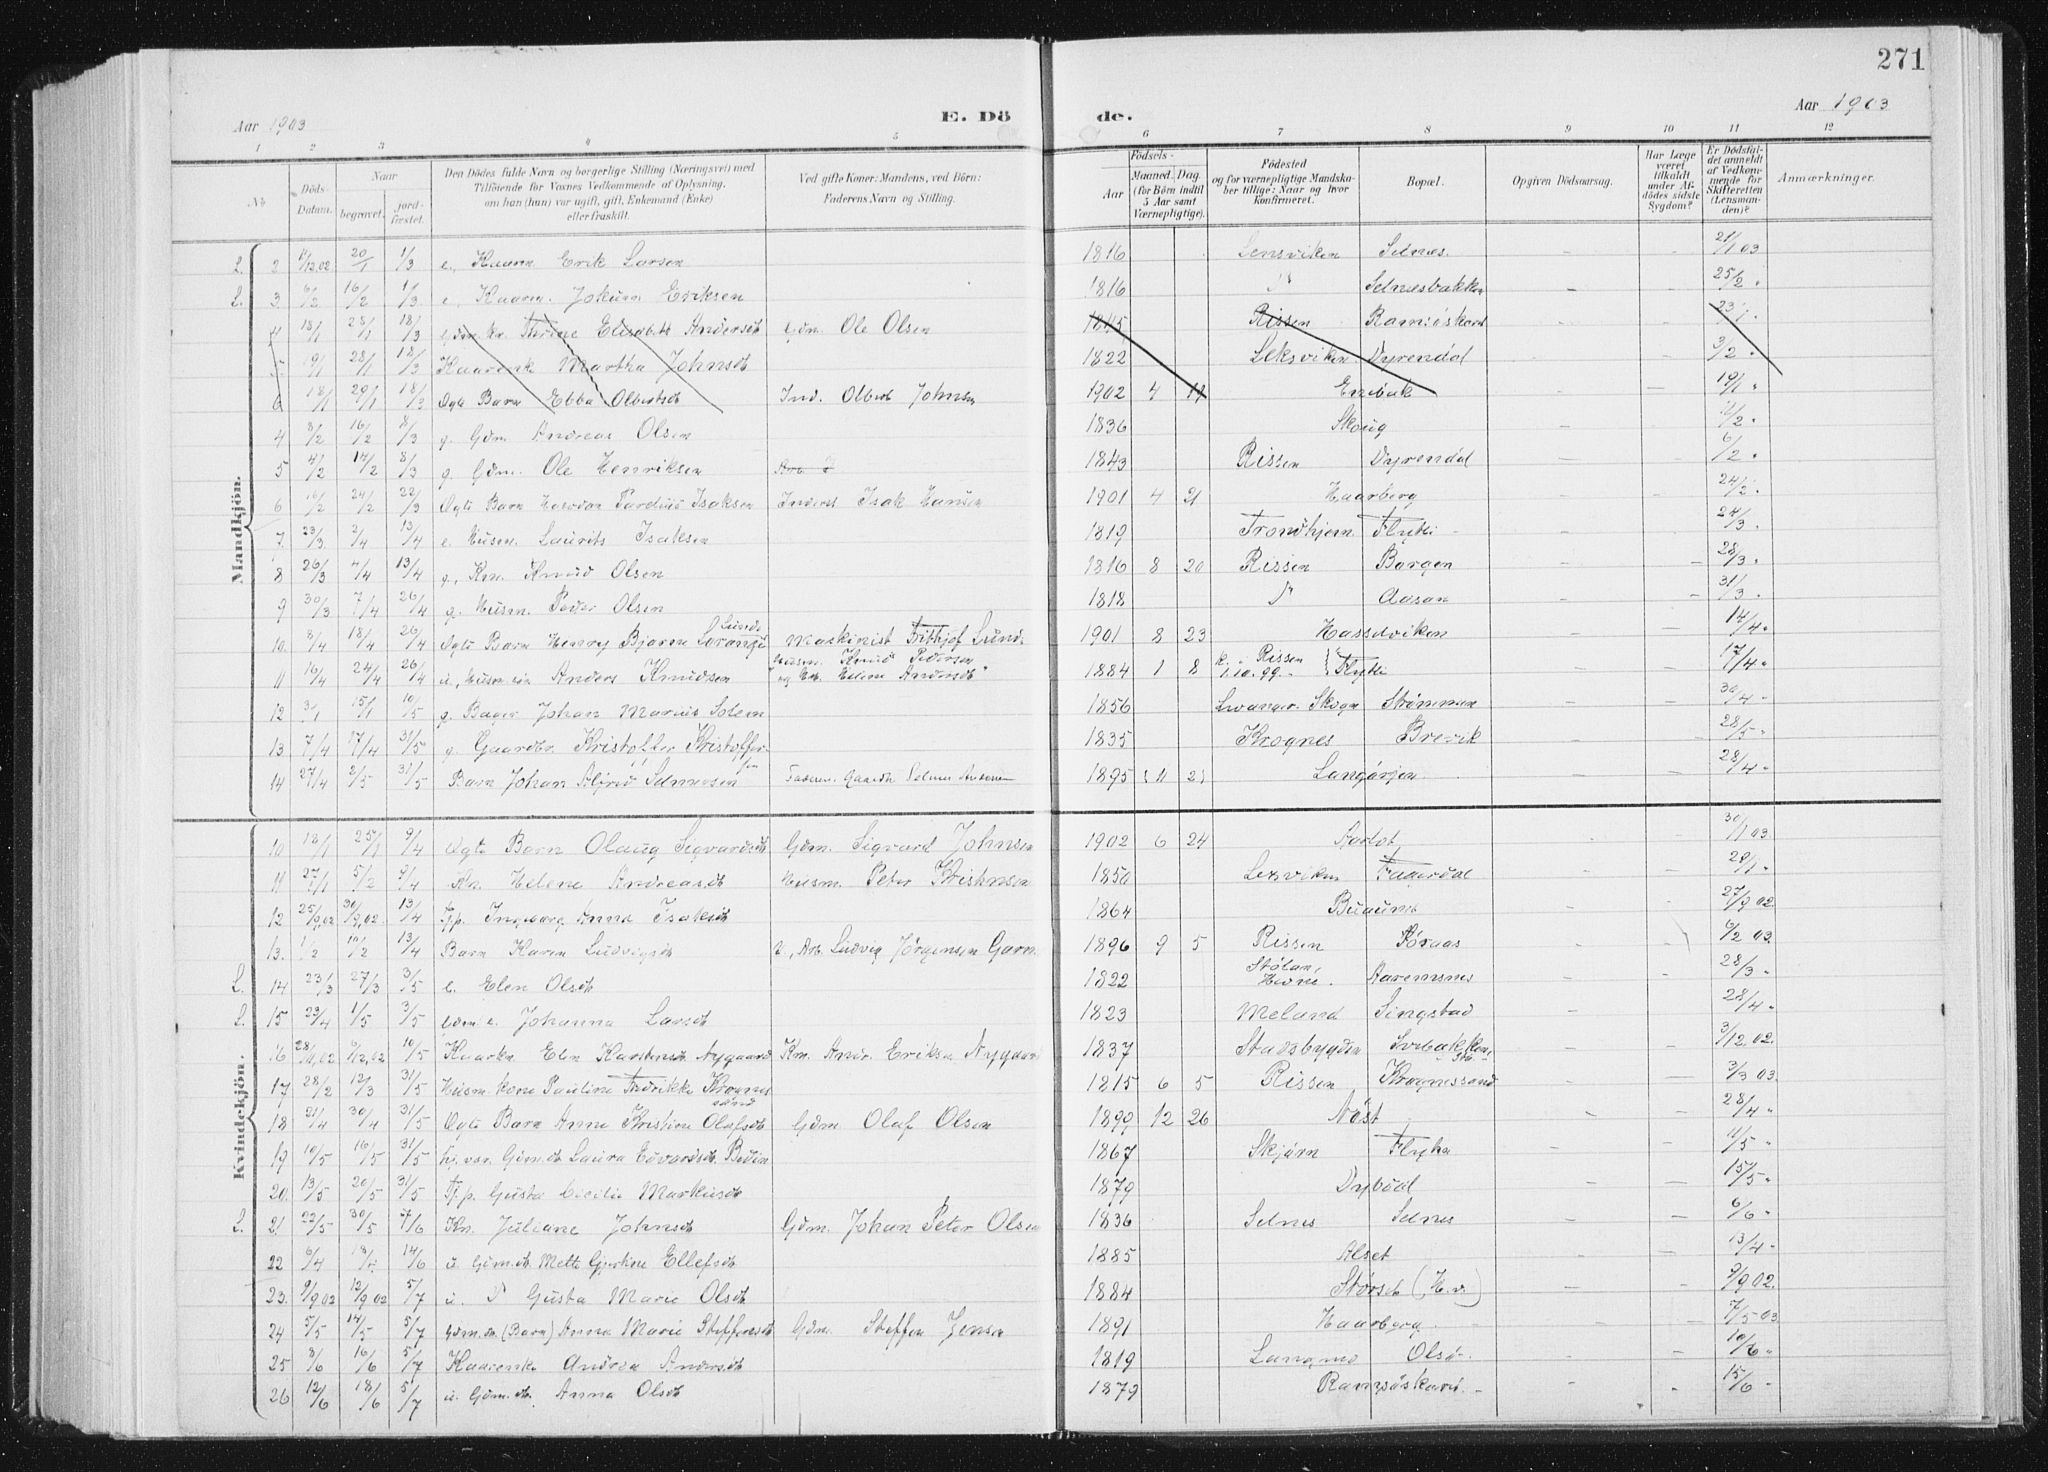 271
Aar 1903
E. Dö de.
Aar 1903
1 2 3 4 5 6 7 8 9 10 11 12
No
Döds-Datum.
Naar
begravet.
jord-fæstet.
Den Dödes fulde Navn og borgerlige Stilling (Næringsvei) med
Tilföiende for Voxnes Vedkommende af Oplysning,
om han (hun) var ugift, gift, Enkemand (Enke)
eller fraskilt.
Ved gifte Koner: Mandens, ved Börn:
Faderens Navn og Stilling.
Födsels-
Aar
Maaned. Dag.
(for Börn indtil
5 Aar samt
Værnepligtige).
Födested
og for værnepligtige Mandska-
ber tillige: Naar og hvor
Konfirmeret.
Bopæl.
Opgiven Dödsaarsag.
Har Læge
været
tilkaldt
under Af-
dödes sidste
Sygdom?
Er Dödsfal-
det anmeldt
af Vedkom-
mende for
Skifteretten
(Lensman-
den)?
Anmærkninger.
Mandkjön.
L. 2. 20/1 1/3 e. Kaarm Erik Larsen 1816 Lensviken Selnæs. 21/1 03
L. 3. 6/2 16/2 1/3 e. Kaarm. Johan Eriksen 1816 Selnæsbakken 25/2
4 18/1 28/1 18/3 Gdm. kn. Thrine Elisabeth Andersdt Gdm. Ole Olsen 1845 Rissen Ramsöskard 23/1
5 19/1 28/1 18/3 Kaarenk Martha Johnsdt 1822 Leksviken Dyrendal 3/2
6 18/1 29/1 18/3 Ægte Barn Ebba Olbertsdt Ind. Olbert Johnsen 1902 4 19 Enebak 19/1
4 8/2 16/2 8/3 g. Gdm. Andreas Olsen 1836 Skoug
5 4/2 14/2 8/3 g. Gdm. Ole Henriksen 1843 Rissen Dyrendal 6/2
6 16/2 24/2 22/3 Ægte Barn Isaksen Inderst Isak Hansen 1901 4 21 Haarberg 24/2
7. 23/3 2/4 13/4 e. Husm. Laurits Isaksen 1819 Trondhjem Flytti 24/3
8 26/3 4/4 13/4 g. Kn. Knud Olsen 1816 8 20 Rissen Borgen 28/3
9 30/3 7/4 26/4 g. Husm. Peder Olsen 1818 Aasan 31/3
10. 8/4 18/4 26/4 Ægte Barn Henry Bjarne Lorang Lunde Maskinist Frithjof Lund 1901 8 23 Hasselviken 14/4
11 16/4 24/4 26/4 u. Husm. søn Anders Knudsen Husm. Knud Pedersen og Helene Andersdt 1884 1 8 K. i Rissen 1.10.99. Flytti 17/4
12 3/1 15/1 10/5 g. Bager Johan Marius Solem 1856 Levanger Skogn Strömmen 30/4
13 7/4 17/4 31/5 g. Gaardbr. Kristoffer Kristoffersen 1835 Krognes Brevik 28/5
14 27/4 2/5 31/5 Barn Johan Alfred Selmersen Faderen: Gaardb. Selmer Andersen 1895 11 21 Langörjen 28/4
Kvindekjön.
10 18/1 25/1 9/4 Ægte Barn Olaug Sigvardsdt Gdm. Sigvard Johnsen 1902 6 24 Aarlot 30/1 03
11 27/1 5/2 9/4 Kn. Helene Andreasdt Husm. Peter Kristensen 1850 Lensviken Faaerdal 29/1
12 25/9 02 30/9 02 13/4 Fp. Ingeborg Anna Isaksdt 1864 27/9 02.
13. 1/2 10/2 13/4 Barn Karen Ludvigsdt Arb. Ludvig Jørgensen Garn 1896 9 5 Rissen Aaraas 6/2 03.
L. 14 23/3 27/3 3/5 e. Elen Olsdt 1822 Stölan, Hevne. Aaremsnes 28/3
L. 15 23/4 1/5 3/5 Gdm. e. Johanna Larsdt 1823 Meland Singstad 28/4
16 28/11 02 6/12 02 10/5 Kaarkn Elen Karstensdt Nygaard Km. Andr. Eriksen Nygaard 1837 Stadsbygden Svebakken, 3/12 02.
17 28/2 12/3 31/5 Husm. kone Pauline Fredrikke Krognessand 1815 6 5 Rissen Krognessand 3/3 03
18 21/4 30/4 31/5 Ægte Barn Anne Kristine Olafsdt Gdm. Olaf Olsen 1899 12 26 Nøst 28/4
19 10/5 16/5 31/5 Gdm. dt. Laura Edvardsdt. Bodin 1867 Skjörn Flyta 11/5
20. 13/5 20/5 31/5 Fp. Gusta Cicilie Markusdt 1879 Dybdal 15/5
L. 21. 22/5 30/5 7/6 Kn. Juliane Johnsdt Gdm. Johan Peter Olsen 1836 Selnes Selnes 6/6
22 6/4 14/6 u. Gdm. dt. Mette Gjertine Ellefsdt 1885 Alset 13/4
23. 9/9 02 12/9 02 5/7 u. Gusta Marie Olsdt 1884 Störset (H.v.) 9/9 02.
24 5/5 14/5 5/7 Gdm. dt. (Barn) Anna Marie Steffensdt Gdm. Steffen Jensen 1891 Haarberg 7/5 03
25 8/6 16/6 5/7 Kaarenke Andrea Andersdt 1819 Langmo Olsö 10/6
26 12/6 18/6 5/7 u. Gdm. dt. Anna Olsdt 1879 Ramsöskard. 15/6